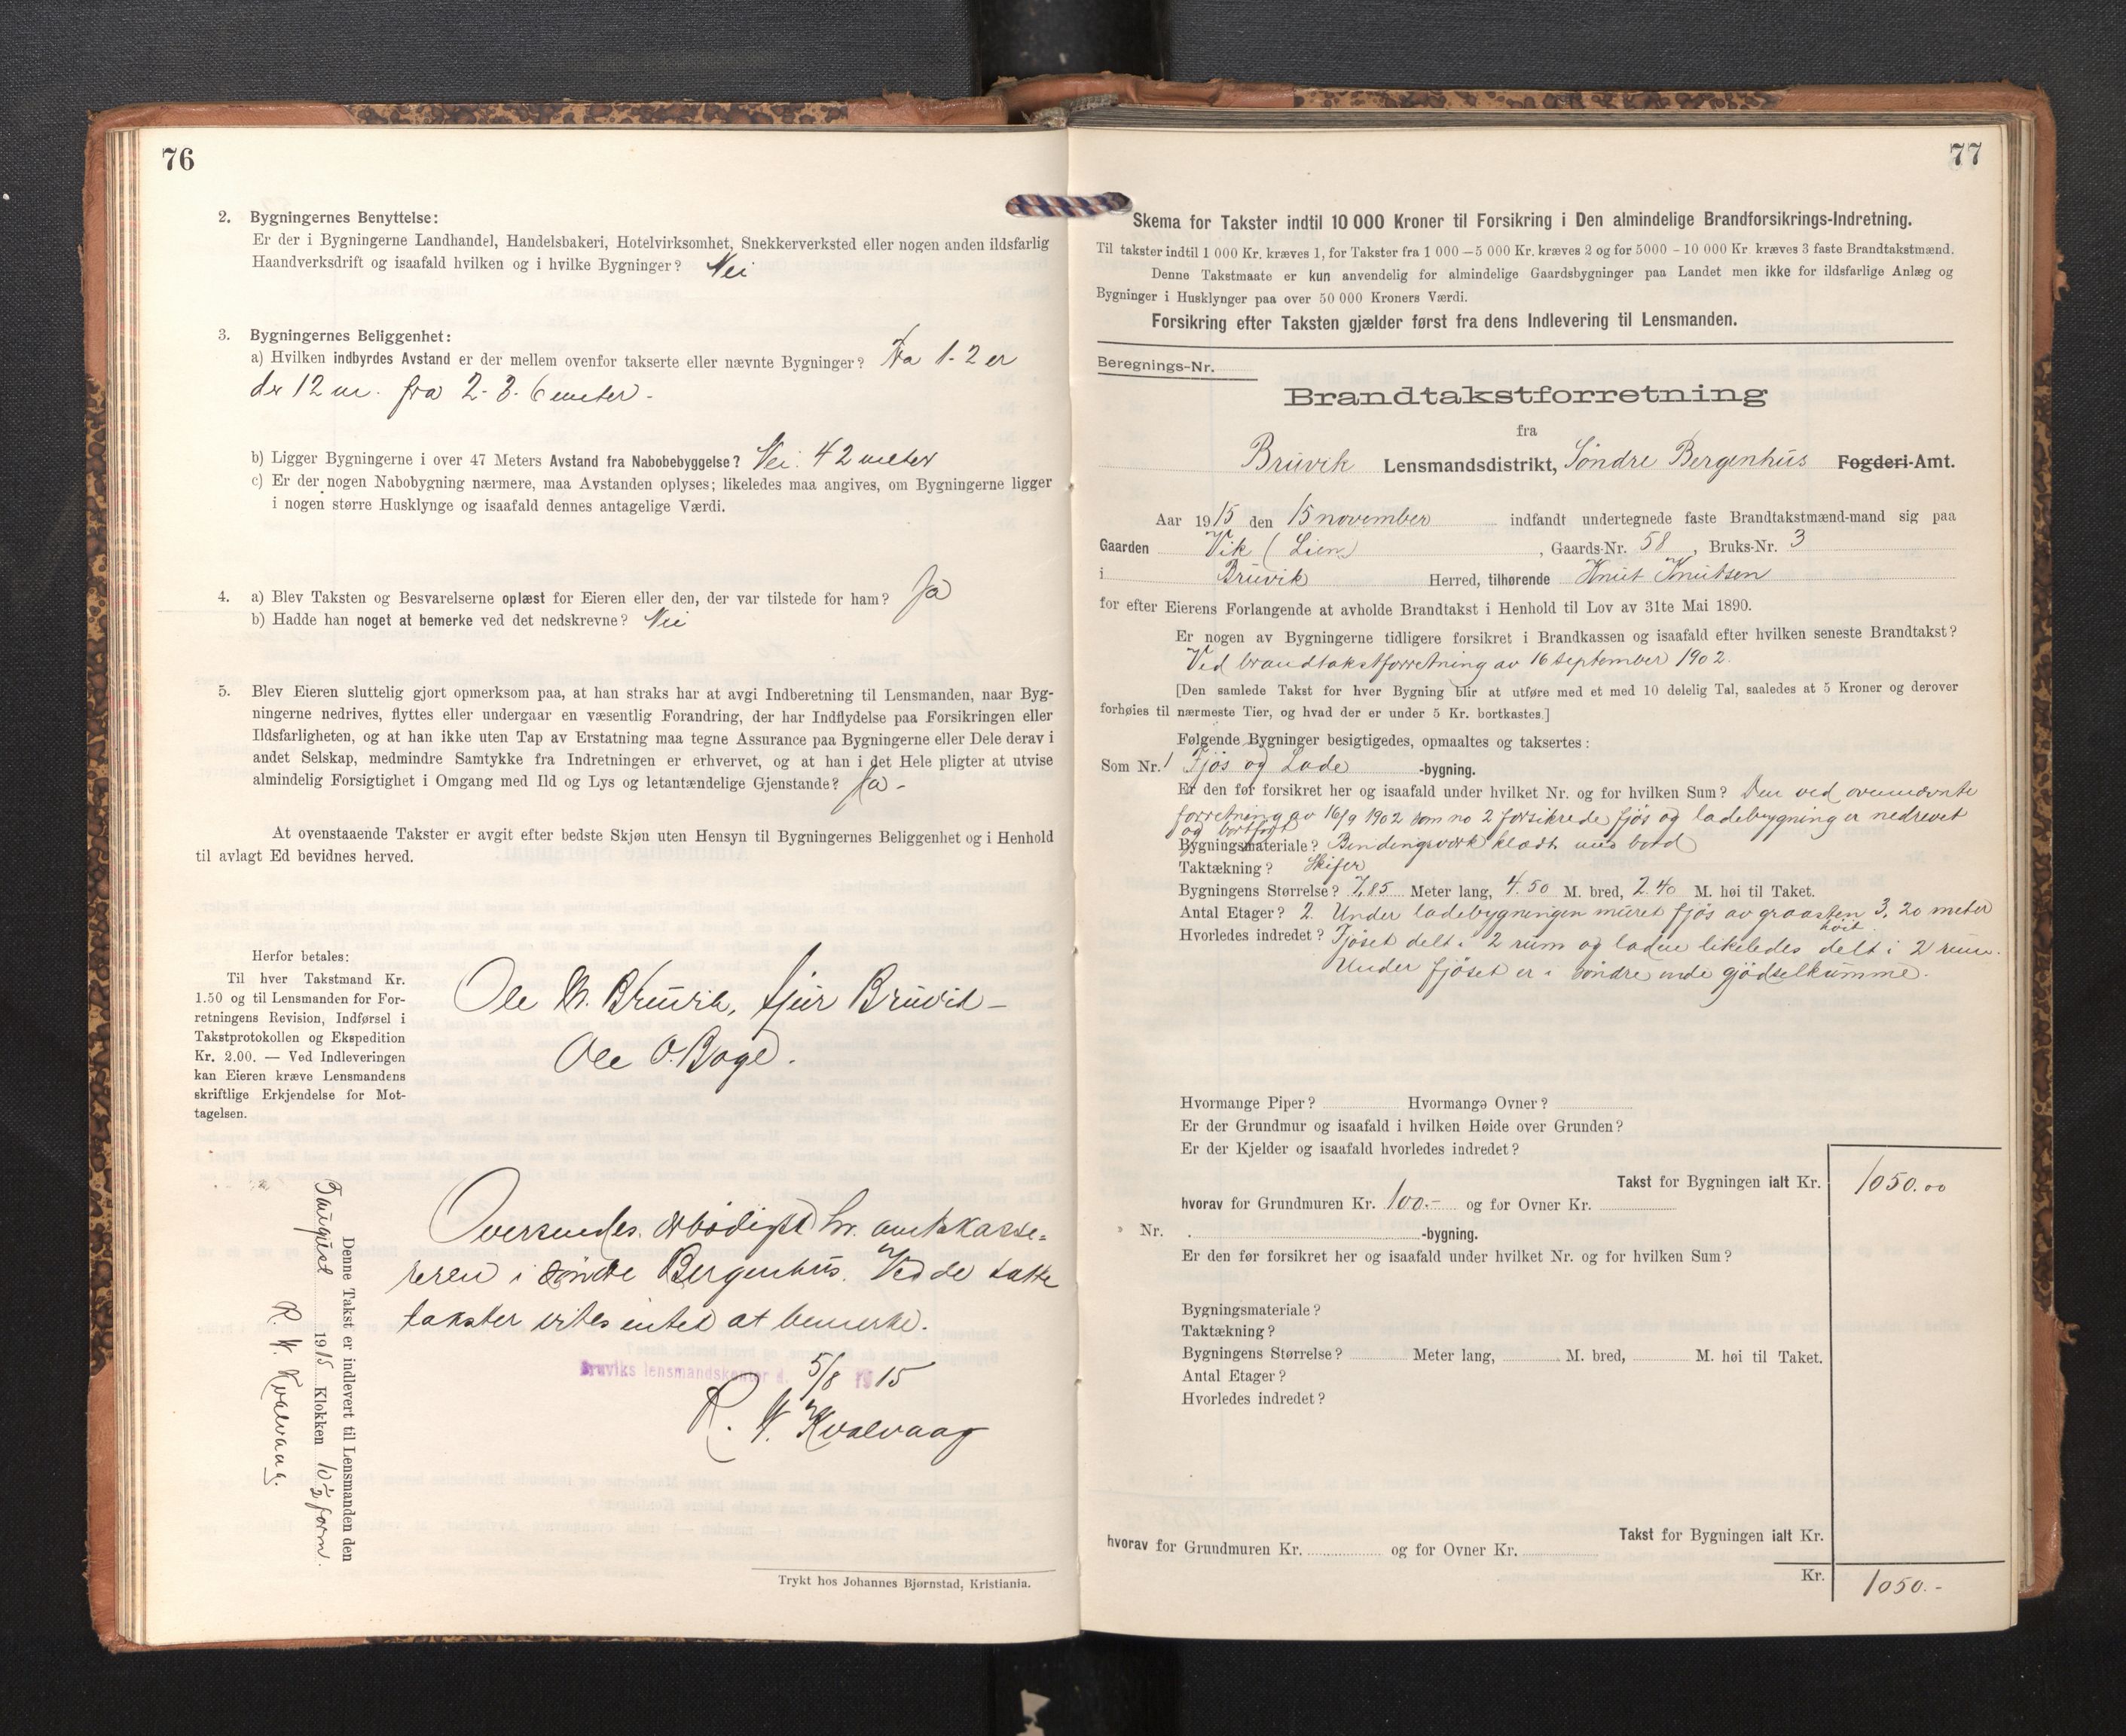 76
2. Bygningernes Benyttelse:
Er der i Bygningerne Landhandel, Handelsbakeri, Hotelvirksomhet, Snekkerverksted eller nogen anden ildsfarlig
Haandverksdrift og isaafald hvilken og i hvilke Bygninger? Nei
3. Bygningernes Beliggenhet:
a) Hvilken indbyrdes Avstand er der mellem ovenfor takserte eller nævnte Bygninger? Fra 1-2 er
der 12 m. fra 2-3. 6 meter -
b) Ligger Bygningerne i over 47 Meters Avstand fra Nabobebyggelse? Nei. 42 meter
c) Er der nogen Nabobygning nærmere, maa Avstanden oplyses; likeledes maa angives, om Bygningerne ligger
i nogen større Husklynge og isaafald dennes antagelige Værdi.
4. a) Blev Taksten og Besvarelserne oplæst for Eieren eller den, der var tilstede for ham? Ja
b) Hadde han noget at bemerke ved det nedskrevne? Nei
5. Blev Eieren sluttelig gjort opmerksom paa, at han straks har at avgi Indberetning til Lensmanden, naar Byg-
ningerne nedrives, flyttes eller undergaar en væsentlig Forandring, der har Indflydelse paa Forsikringen eller
Ildsfarligheten, og at han ikke uten Tap av Erstatning maa tegne Assurance paa Bygningerne eller Dele derav i
andet Selskap, medmindre Samtykke fra Indretningen er erhvervet, og at han i det Hele pligter at utvise
almindelig Forsigtighet i Omgang med Ild og Lys og letantændelige Gjenstande? Ja -
At ovenstaaende Takster er avgit efter bedste Skjøn uten Hensyn til Bygningernes Beliggenhet og i Henhold
til avlagt Ed bevidnes herved.
Herfor betales:
Til hver Takstmand Kr.
1.50 og til Lensmanden for For-
retningens Revision, Indførsel i
Takstprotokollen og Ekspedition
Kr. 2.00. — Ved Indleveringen
kan Eieren kræve Lensmandens
skriftlige Erkjendelse for Mot-
tagelsen.
Ole M. Bruvik, Sjur Bruvik -
Ole O. Boge.
Denne Takst er indlevert til Lensmanden den
5 august 1915 Klokken 10 1/2 form.
R. N. Kvalvaag.
Oversendes ærbødigst hr. amtskasse-
reren i søndre Bergenhus. Ved de satte
takster vites intet at bemerke.
Bruviks lensmandskontor d. 5/8 1915
R. N. Kvalvaag
Trykt hos Johannes Bjørnstad, Kristiania.
77
Skema for Takster indtil 10 000 Kroner til Forsikring i Den almindelige Brandforsikrings-Indretning.
Til takster indtil 1 000 Kr. kræves 1, for Takster fra 1 000 — 5 000 Kr. kræves 2 og for 5000 - 10 000 Kr. kræves 3 faste Brandtakstmænd.
Denne Takstmaate er kun anvendelig for almindelige Gaardsbygninger paa Landet men ikke for ildsfarlige Anlæg og
Bygninger i Husklynger paa over 50 000 Kroners Værdi.
Forsikring efter Taksten gjælder først fra dens Indlevering til Lensmanden.
Beregnings-Nr.
Brandtakstforretning
fra
Bruvik Lensmandsdistrikt, Søndre Bergenhus Fogderi-Amt.
Aar 1915 den 15 november indfandt undertegnede faste Brandtakstmænd-mand sig paa
Gaarden Vik (Lien), Gaards-Nr. 58, Bruks-Nr. 3
i Bruvik Herred, tilhørende Knut Knutsen
for efter Eierens Forlangende at avholde Brandtakst i Henhold til Lov av 31te Mai 1890.
Er nogen av Bygningerne tidligere forsikret i Brandkassen og isaafald efter hvilken seneste Brandtakst?
Ved brandtakstforretning av 16 september 1902.
[Den samlede Takst for hver Bygning blir at utføre med et med 10 delelig Tal, saaledes at 5 Kroner og derover
forhøies til nærmeste Tier, og hvad der er under 5 Kr. bortkastes.]
Følgende Bygninger besigtigedes, opmaaltes og taksertes:
Som Nr. 1 Fjøs og Lade -bygning.
Er den før forsikret her og isaafald under hvilket Nr. og for hvilken Sum? Den ved ovennævnte
forretning av 16/9 1902 som no 2 forsikrede fjøs og ladebygning er nedrevet
og bortført
Bygningsmateriale? Bindingsverk klædt med bord
Taktækning? Skifer
Bygningens Størrelse? 7,85 Meter lang, 4.50 M. bred, 2.40 M. høi til Taket.
Antal Etager? 2. Under ladebygningen muret fjøs av graasten 3,20 meter
høit.
Hvorledes indredet? Fjøset delt i 2 rum og laden likeledes delt i 2 rum.
Under fjøset er i søndre ende gjødselkumme.
Hvormange Piper? Hvormange Ovner?
Er der Grundmur og isaafald i hvilken Høide over Grunden?
Er der Kjelder og isaafald hvorledes indredet?
Takst for Bygningen ialt Kr. 1050.00
hvorav for Grundmuren Kr. 100.- og for Ovner Kr.
Nr. -bygning.
Er den før forsikret her og isaafald under hvilket Nr. og for hvilken Sum?
Bygningsmateriale?
Taktækning?
Bygningens Størrelse? Meter lang, M. bred, M. høi til Taket.
Antal Etager?
Hvorledes indredet?
Takst for Bygningen ialt Kr.
hvorav for Grundmuren Kr. og for Ovner Kr.
Kr. 1050.-